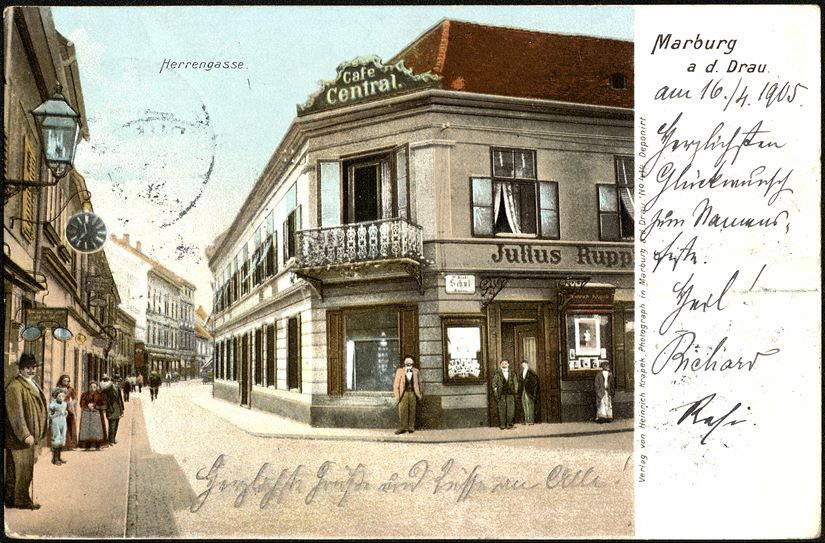 Herrengasse.
Cafe
Central.
Julius Rupp
Schul
Marburg
a d. Drau.
am 16./4. 1905.
Herzlichsten
Glückwunsch
zum Namens-
feste.
Heil!
Richard
Verlag von Heinrich Krapek, Photograph in Marburg a/d. Drau. Deponirt.
Herzlichste Grüße und Küsse an Alle!